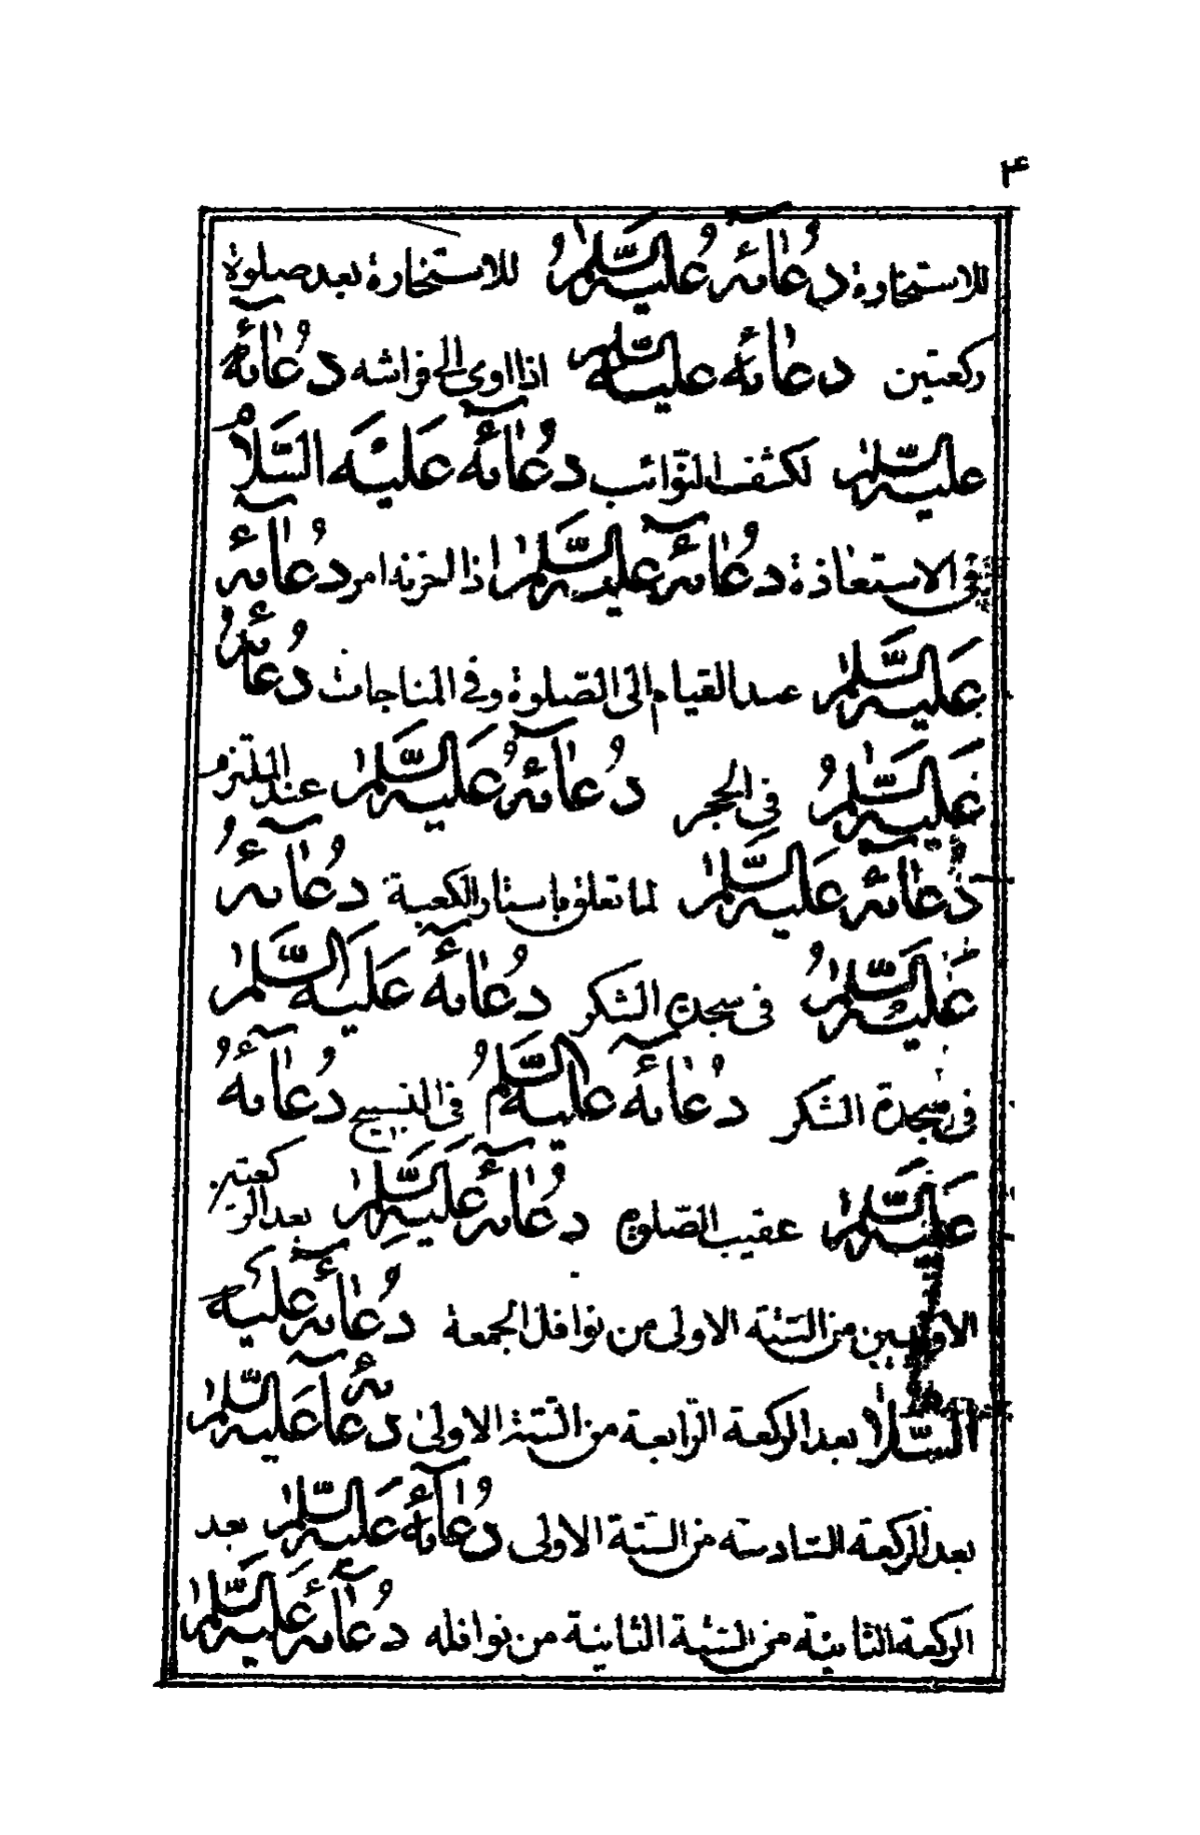 ۴
للاستخارة دُعَاۤئُه عليه السّلٰمُ للاستخارة بعد صلوة
ركعتين دعائه عليه السّلٰم اذا اوى الى فراشه دُعاۤئه
عليه السّلٰم لكشف النّوائب دُعاۤئه عَليْه السَّلامُ
فى الاستعاذة دُعاۤئه عليه السّلٰم اذا احزنه امر دُعاۤئه
عَليه السَّلٰم عند القيام الى الصّلوة وفى المناجات دُعائهُ
عَليه السَّلٰمُ فى الحجر دُعاۤئهُ عَليه السَّلٰم عند الملتزم
دُعاۤئه عَليه السّلٰم لما تعلق باستار الكعبة دُعاۤئهُ
عَليه السَّلٰمُ فى سجدة الشكر دُعاۤئه عَليه السَّلٰم
فى سجدة الشكر دُعاۤئه عليه السَّلٰمُ فى التسبيح دُعاۤئهُ
عَليه السَّلٰم عقيب الصّلوة دُعاۤئه عَليه السَّلٰم بعد الركعتين
الاوليين من السّتة الاولى من نوافل الجمعة دُعاۤئه عَليه
السّلام بعد الركعة الرّابعة من السّتة الاولىٰ دُعائه عَليه السّلٰم
بعد الركعة السّادسة من السّتة الاولى دُعاۤئه عَليه السّلٰم بعد
الركعة الثانية من السّتة الثانية من نوافله دُعاۤئه عَليه السّلٰم